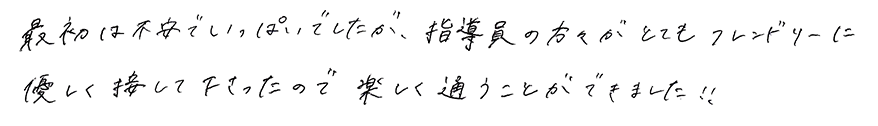 最初は不安でいっぱいでしたが、指導員の方々がとてもフレンドリーに
優しく接して下さったので楽しく通うことができました!!